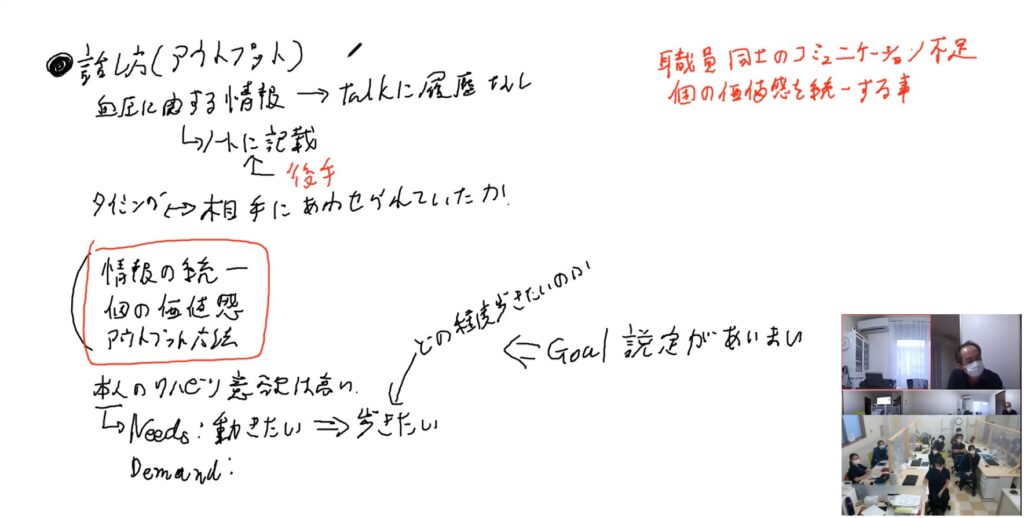 話し方(アウトプット)
血圧に関する情報 → talkに履歴なし
ノートに記載
後手
タイミング ↔ 相手にあわせられていたか
情報の統一
個の価値感
アウトプット方法
本人のリハビリ意欲は高い
Needs: 動きたい ⇒ 歩きたい
Demand:
どの程度歩きたいのか
⇐ Goal 設定があいまい
職員同士のコミュニケーション不足
個の価値感を統一する事